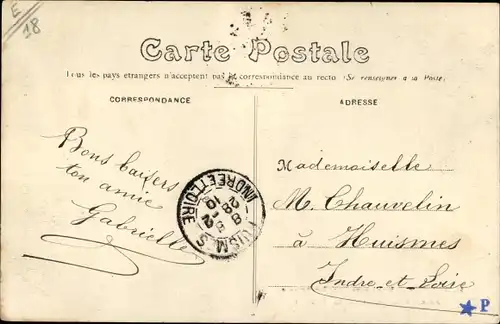 E
18
Carte Postale
Tous les pays etrangers n'acceptent pas la correspondance au recto (Se renseigner a la Poste)
CORRESPONDANCE
ADRESSE
Bons baisers
ton amie
Gabrielle
INDRE ET LOIRE
Mademoiselle
M. Chauvelin
à Huismes
Indre et Loire
P